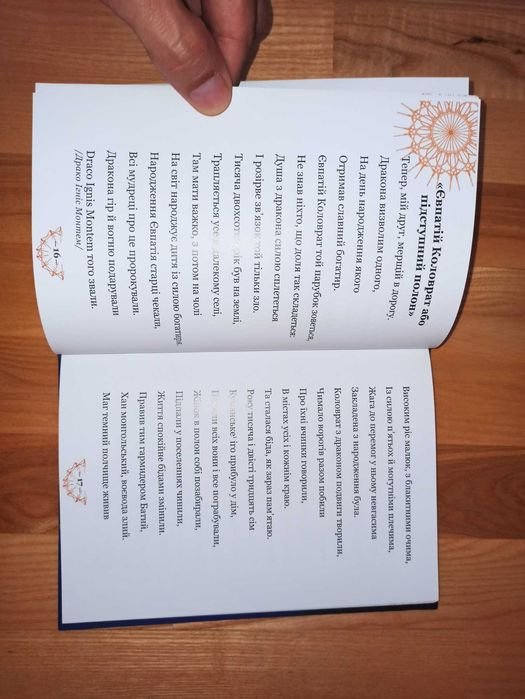 «Євпатій Коловрат або
підступний полон»
Тепер, мій друг, мерщій в дорогу.
Дракона визволим одного,
На день народження якого
Отримав славний богатир.
Євпатій Коловрат той парубок зоветься,
Не знав ніхто, що доля так складеться:
Душа з дракона силою сплететься
І розірве зв'язок той тільки зло.
Тисяча двохсотий рік був на землі,
Трапляється усе в далекому селі,
Там мати важко, з потом на чолі
На світ народжує дитя із силою богатиря.
Народження Євпатія старці чекали,
Всі мудреці про це пророкували.
Дракона гір й вогню подарували
Draco Ignis Montem того звали.
/Драко Ігніс Монтем/
16
Високим ріс малюк, з блакитними очима,
Із силою п'ятьох й могутніми плечима,
Жага до перемог у ньому невгасима
Закладена з народження була.
Коловрат з драконом подвиги творили,
Чимало ворогів разом побили
Про їхні вчинки говорили,
В містах усіх і кожнім краю.
Та сталася біда, як зараз пам'ятаю.
Року тисяча і двісті тридцять сім
іго прибуло у дім,
всіх вони і все пограбували,
Жінок в полон собі позабирали,
Підпали у поселеннях чинили,
Життя спокійне бідами змінили.
Правив тим гармидером Батий,
Хан монгольський, воєвода злий.
Маг темний полчище живив
17